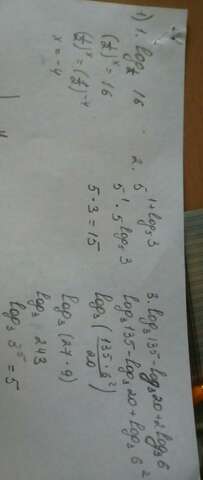 1) 1. log_{1/2} 16
(1/2)^x = 16
(1/2)^x = (1/2)^{-4}
x = -4
2. 5^{1+log_5 3}
5^1 · 5^{log_5 3}
5 · 3 = 15
3. log_3 135 - log_3 20 + 2 log_3 6
log_3 135 - log_3 20 + log_3 6^2
log_3 (135 · 6^2 / 20)
log_3 (27 · 9)
log_3 243
log_3 3^5 = 5